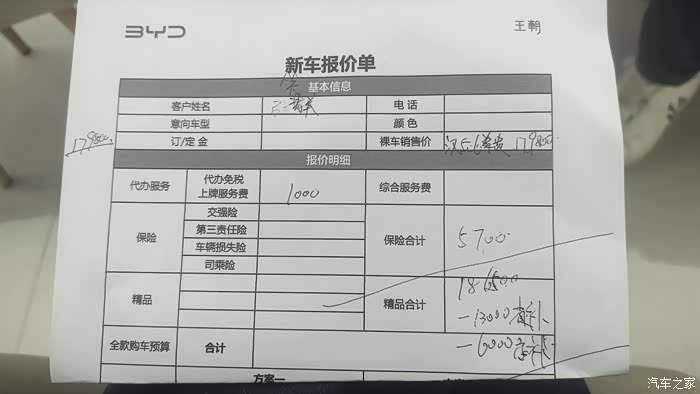 BYD
王朝
新车报价单
基本信息
客户姓名 电话
意向车型 颜色
179800 订/定金 裸车销售价 179800
报价明细
代办服务 代办免税上牌服务费 1000 综合服务费
保险 交强险 保险合计 5700
第三责任险
车辆损失险
司乘险
精品 精品合计 186500
-13000
全款购车预算 合计 -6000
方案一
汽车之家